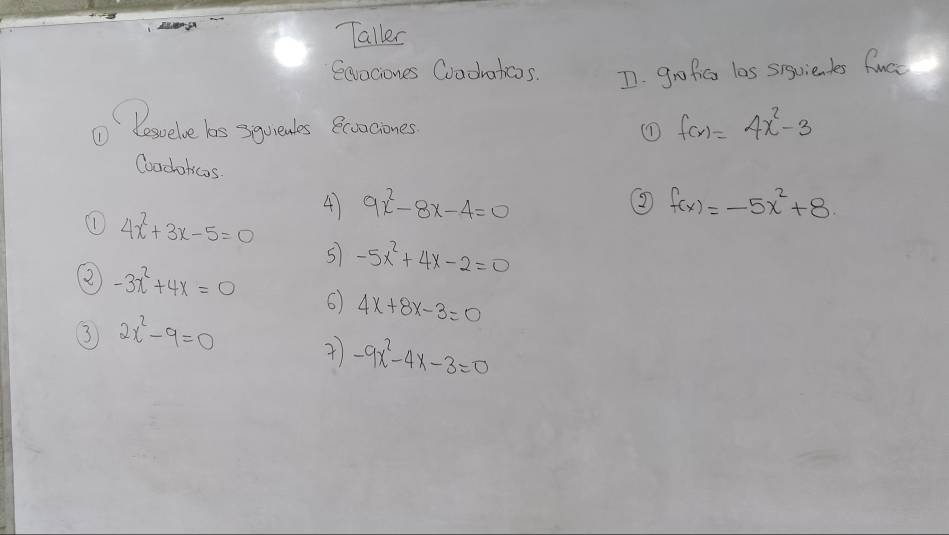 Taller
Ecuaciones Cuadraticas.
① Resuelve las siguientes Ecuaciones
Cuadraticas.
① 4x²+3x-5=0
② -3x²+4x=0
③ 2x²-9=0
4) 9x²-8x-4=0
5) -5x²+4x-2=0
6) 4x+8x-3=0
7) -9x²-4x-3=0
II. grafica las siguientes
① f(x)= 4x²-3
② f(x)=-5x²+8.